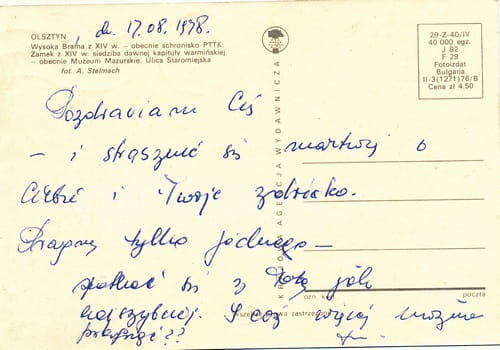 OLSZTYN
Wysoka Brama z XIV w. — obecnie schronisko PTTK.
Zamek z XIV w. siedziba dawnej kapituły warmińskiej
— obecnie Muzeum Mazurskie. Ulica Staromiejska
fot. A. Stelmach
dn. 17.08.1978.
29-Z-40/IV
40 000 egz.
J 82
F 29
Fotoizdat
Bulgaria
II-3(1271)76/B
Cena zł 4.50
KRAJOWA AGENCJA WYDAWNICZA
Pozdrawiam Cię
— i strasznie się martwię o
Ciebie i Twoje zdrówko.
Pragnę tylko jednego —
spotkać się z Tobą jak
najszybciej. I cóż więcej można
pragnąć??
ozn. k
zastrzeżo